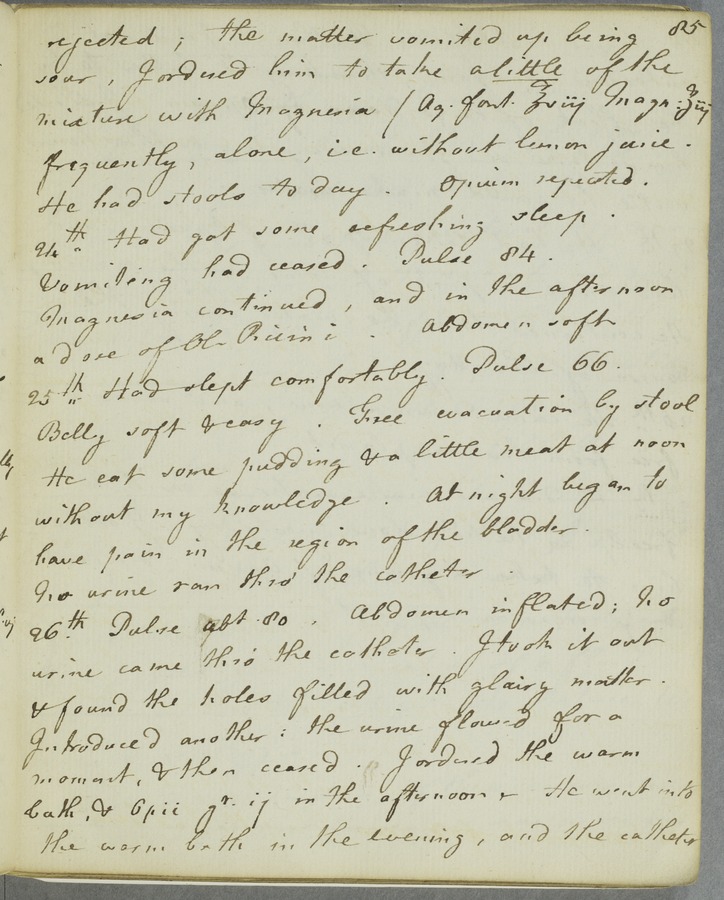 85
rejected ; the matter vomited up being
sour, I ordered him to take a little of the
mixture with Magnesia / Aq. font. ℥viij Magn. ʒiij
frequently, alone, i.e. without lemon juice.
He had stools to day. Opium rejected.
24th Had got some refreshing sleep.
Vomiting had ceased. Pulse 84.
Magnesia continued, and in the afternoon
a dose of Ol. Ricini. Abdomen soft
25th Had slept comfortably. Pulse 66.
Belly soft & easy. Free evacuation by stool
He eat some pudding & a little meat at noon
without my knowledge. At night began to
have pain in the region of the bladder.
No urine ran thro' the catheter.
26th Pulse abt 80. Abdomen inflated; No
urine came thro' the catheter. I took it out
& found the holes filled with glairy matter.
Introduced another: the urine flowed for a
moment, & then ceased. I ordered the warm
bath, & Opii gr. ij in the afternoon. He went into
the warm bath in the evening, and the catheter